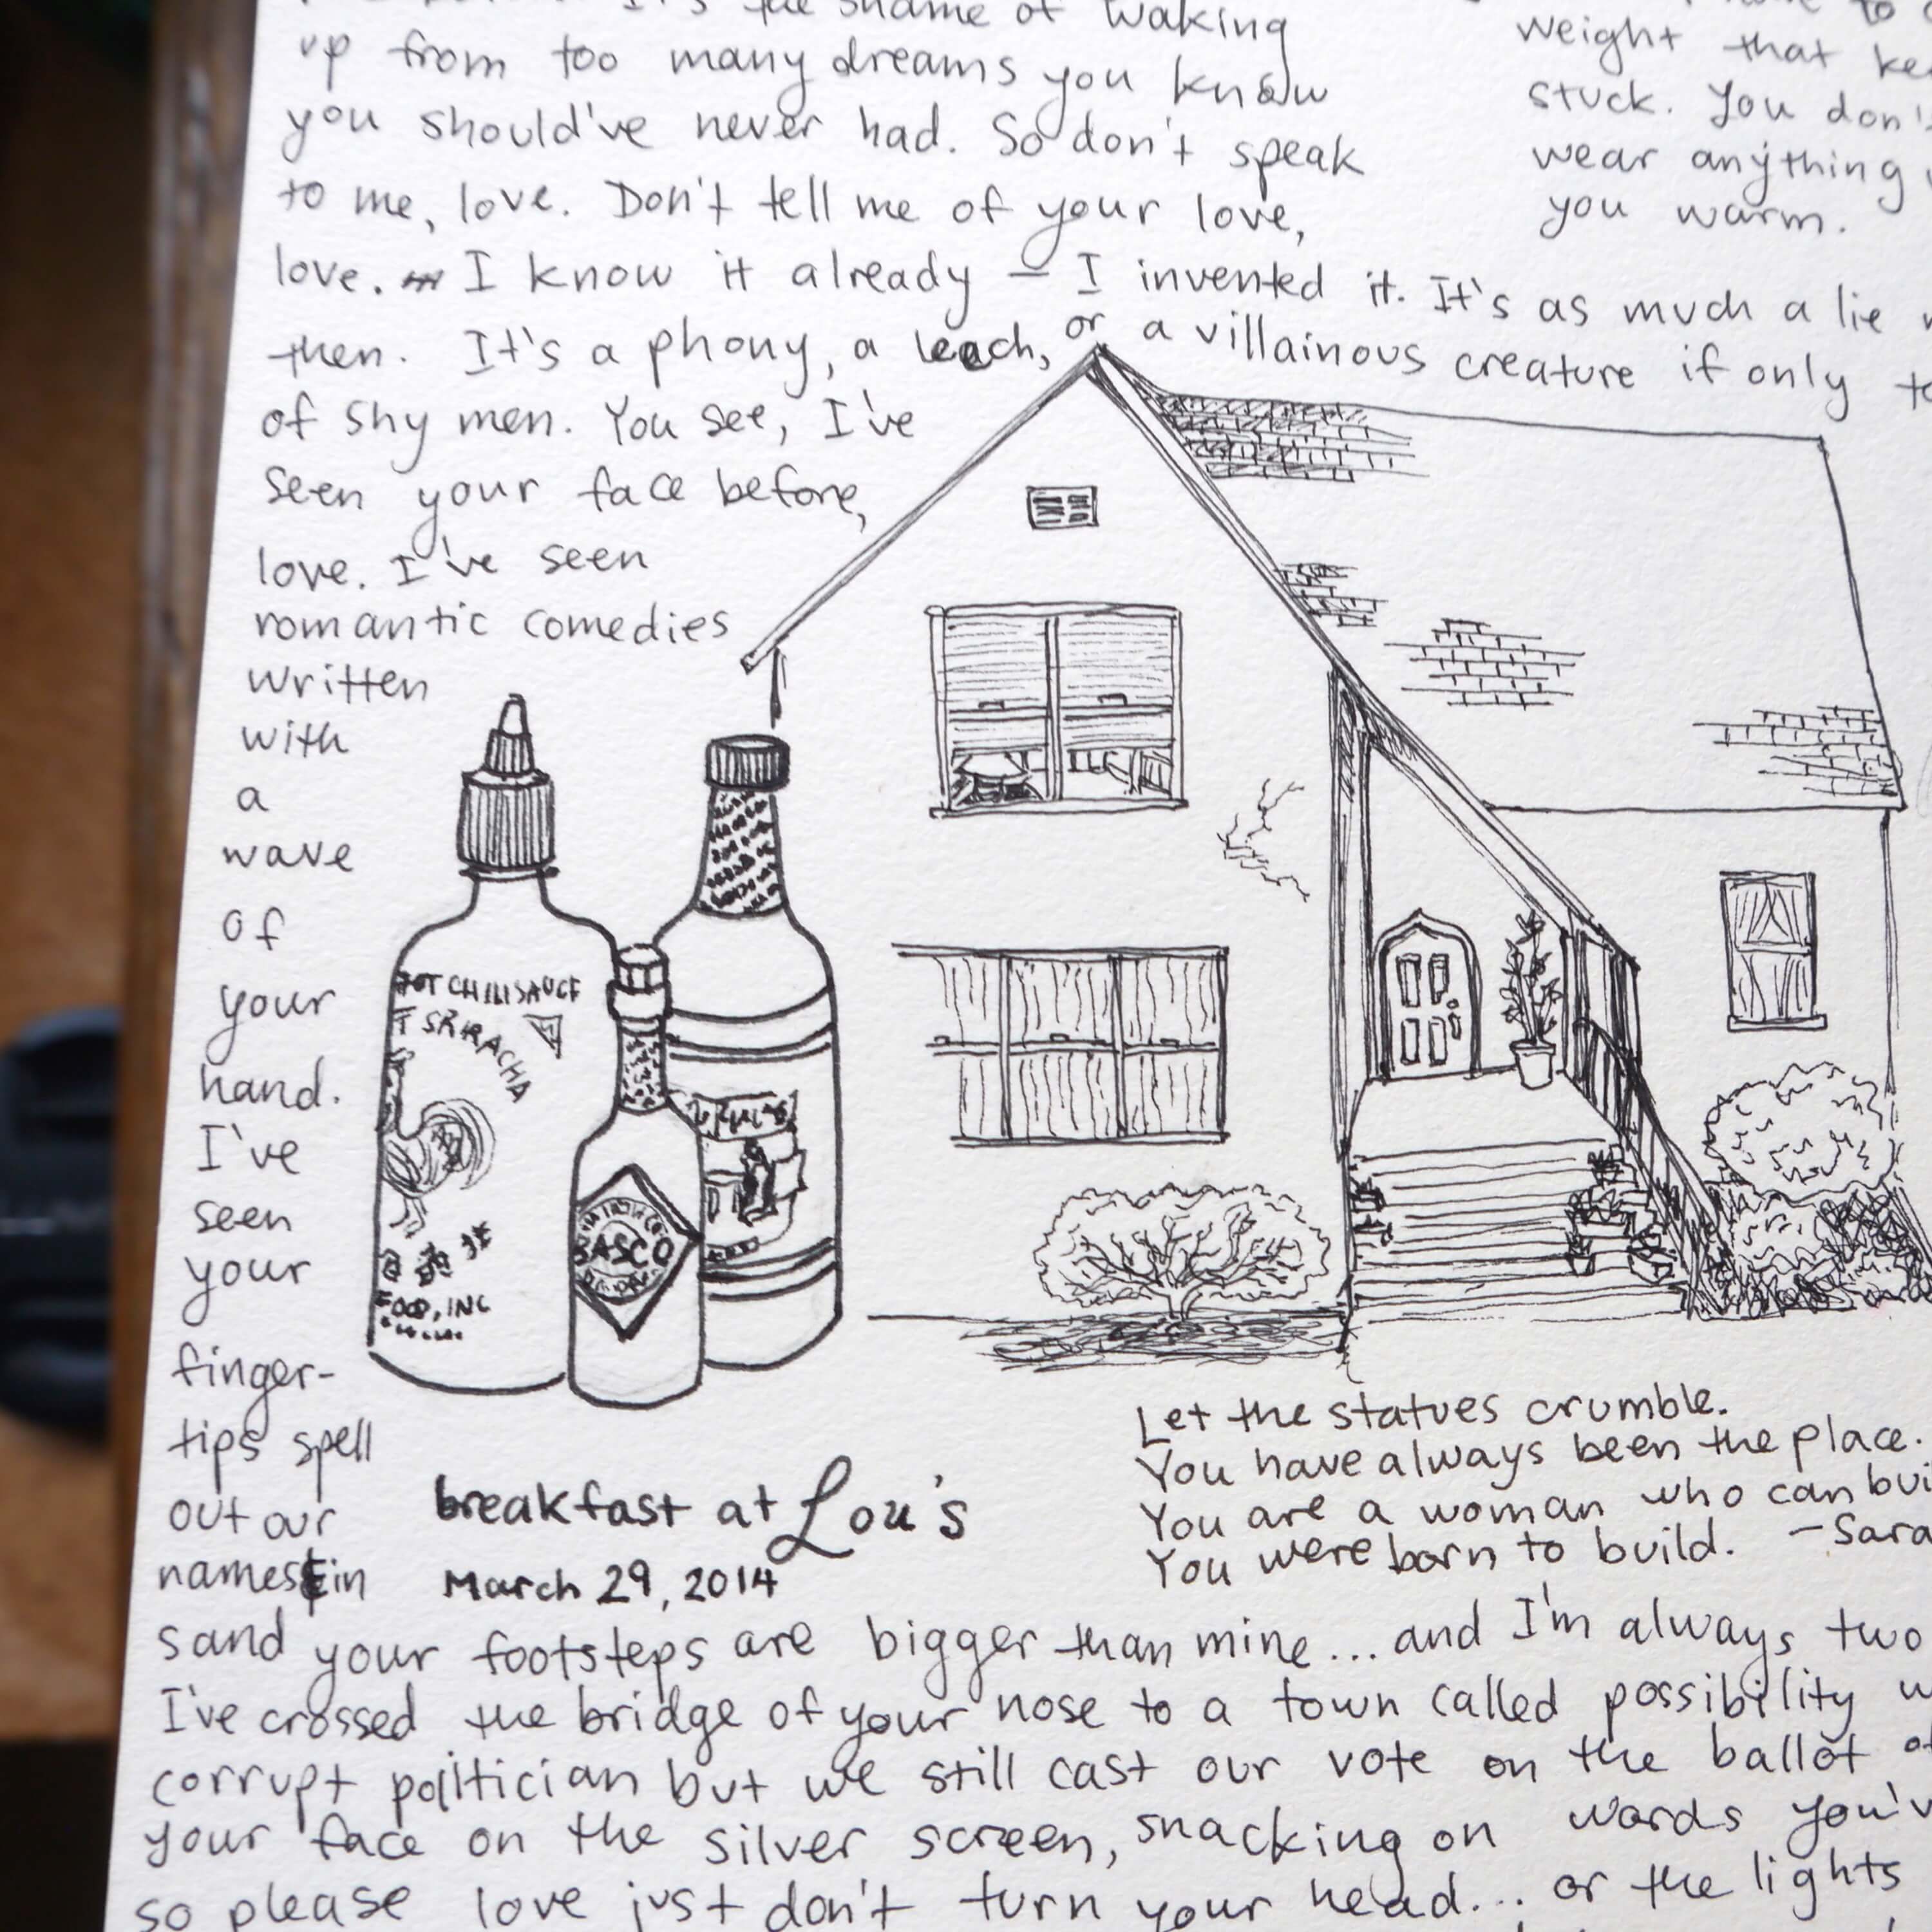 It's the shame of waking
up from too many dreams you know
you should've never had. So don't speak
to me, love. Don't tell me of your love,
love. I know it already – I invented it. It's as much a lie
then. It's a phony, a leech, or a villainous creature if only
of shy men. You see, I've
seen your face before,
love. I've seen
romantic comedies
written
with
a
wave
of
your
hand.
I've
seen
your
finger-
tips spell
out our
names in
sand your footsteps are bigger than mine... and I'm always two
I've crossed the bridge of your nose to a town called possibility
corrupt politician but we still cast our vote on the ballot
your face on the silver screen, snacking on words
so please love just don't turn your head... or the lights
to
weight that
stuck. You don't
wear anything
you warm.
HOT CHILI SAUCE
SRIRACHA
FOOD, INC
BASCO
breakfast at Lou's
March 29, 2014
Let the statues crumble.
You have always been the place.
You are a woman who can
You were born to build. –